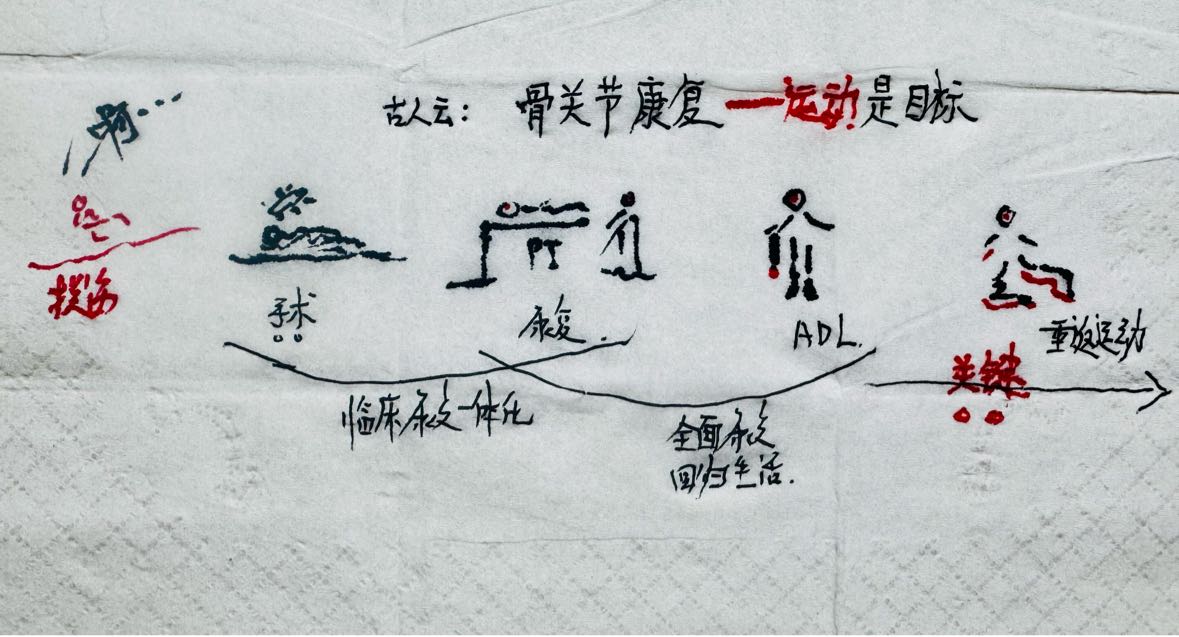 古人云: 骨关节康复—运动是目标
啊…
损伤
手术
PT
康复.
ADL.
重返运动
关键
临床康复一体化
全面康复
回归生活.